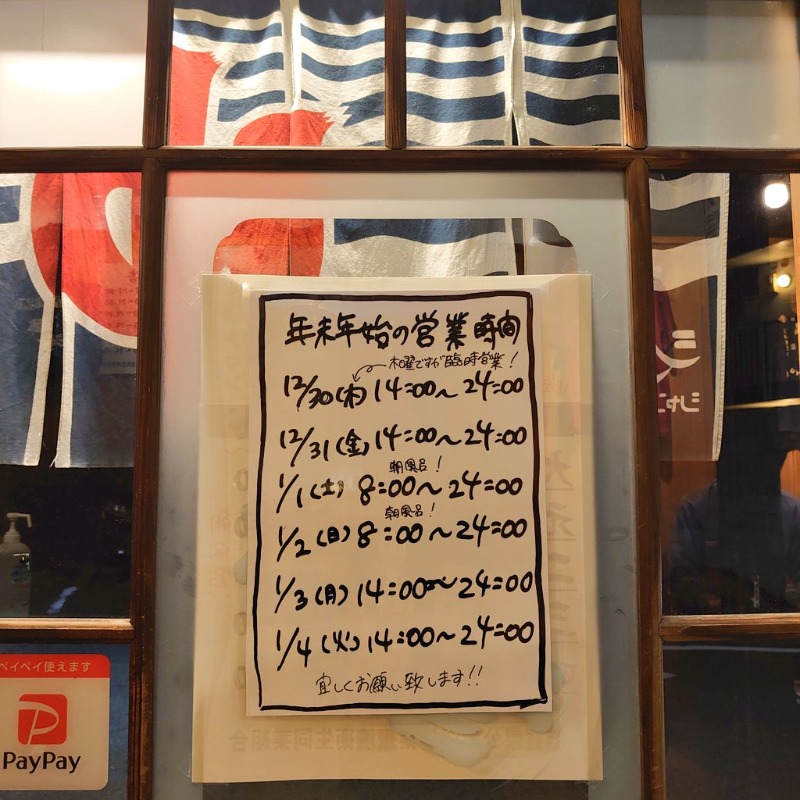 年末年始の営業時間
木曜ですが臨時営業!
12/30(木) 14:00～24:00
12/31(金) 14:00～24:00
朝風呂!
1/1(土) 8:00～24:00
朝風呂!
1/2(日) 8:00～24:00
1/3(月) 14:00～24:00
1/4(火) 14:00～24:00
宜しくお願い致します!!
ペイペイ使えます
PayPay